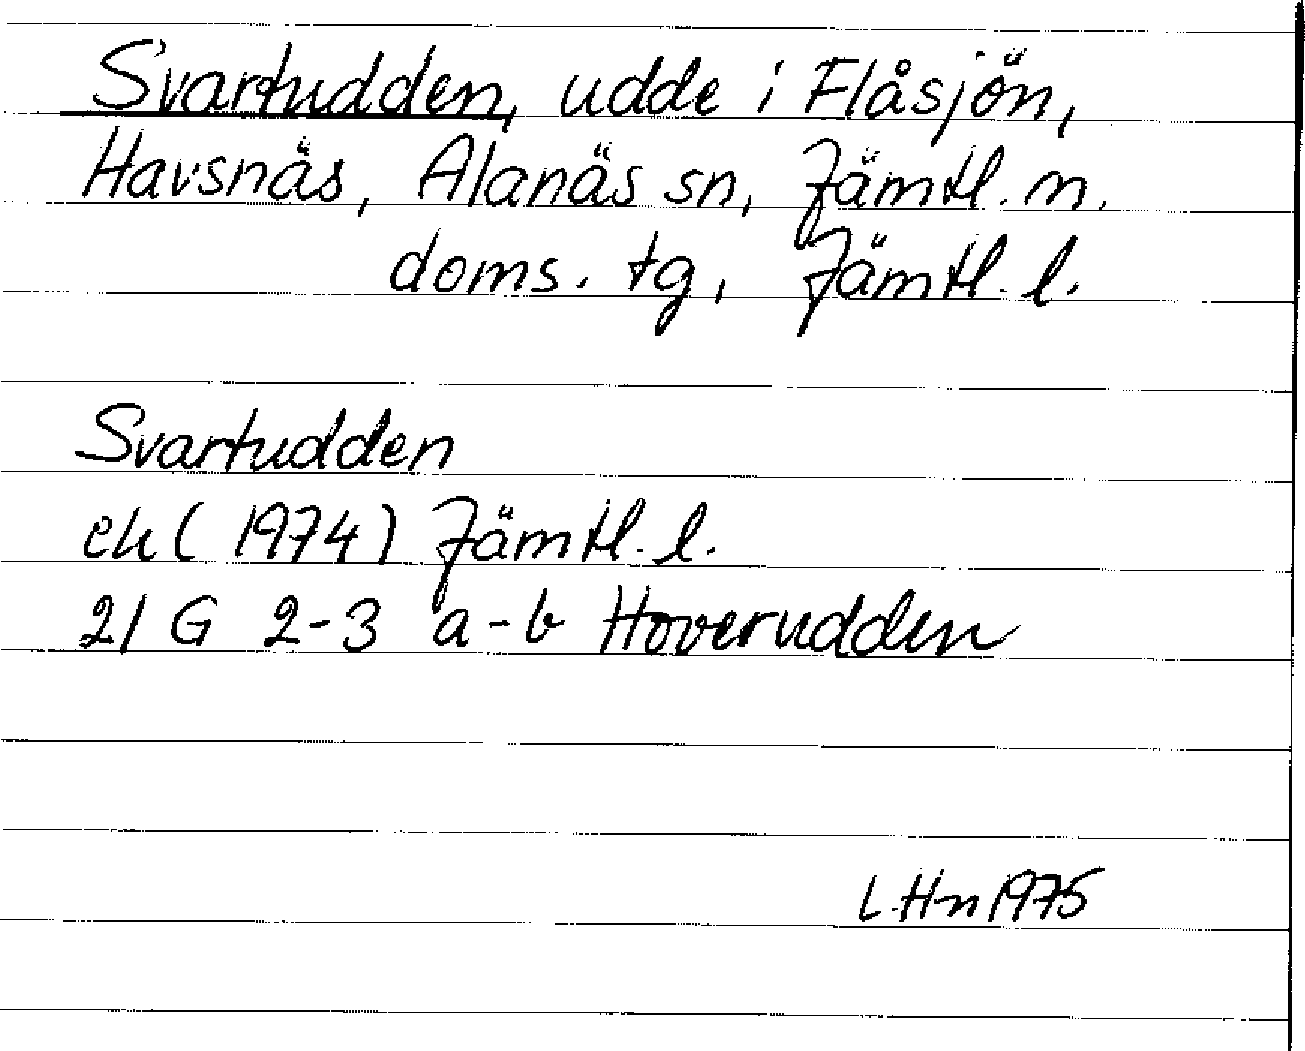 Svartudden, udde i Flåsjön,
Havsnäs, Alanäs sn, Jämtl. n.
doms. tg, Jämtl. l.
Svartudden
ek (1974) Jämtl. l.
21 G 2-3 a-b Hoverudden
L Hn 1975